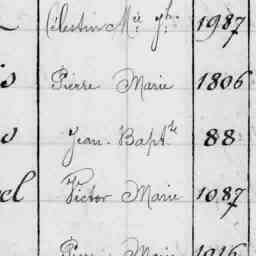 Célestin Mie Jh 1987
is Pierre Marie 1806
o Jean-Bapte 88
el Victor Marie 1087
Pierre Marie 1916